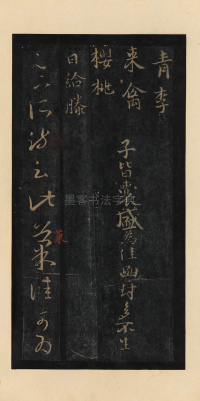 青李
来禽
櫻桃
日給滕
子皆囊盛為佳函封多不生
足下所疏云此菓佳可為
墨客书法字